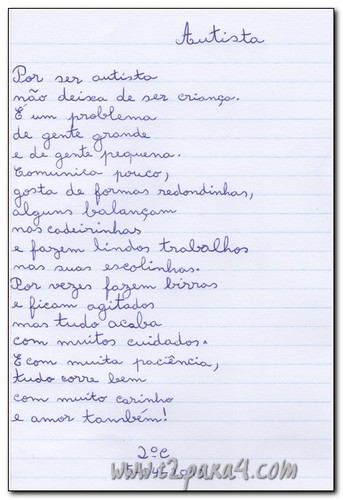 Autista
Por ser autista
não deixa de ser criança.
É um problema
de gente grande
e de gente pequena.
Comunica pouco,
gosta de formas redondinhas,
alguns balançam
nas cadeirinhas
e fazem lindos trabalhos
nas suas escolinhas.
Por vezes fazem birras
e ficam agitados
mas tudo acaba
com muitos cuidados.
E com muita paciência,
tudo corre bem
com muito carinho
e amor também!
2º C
www.t2para4.com